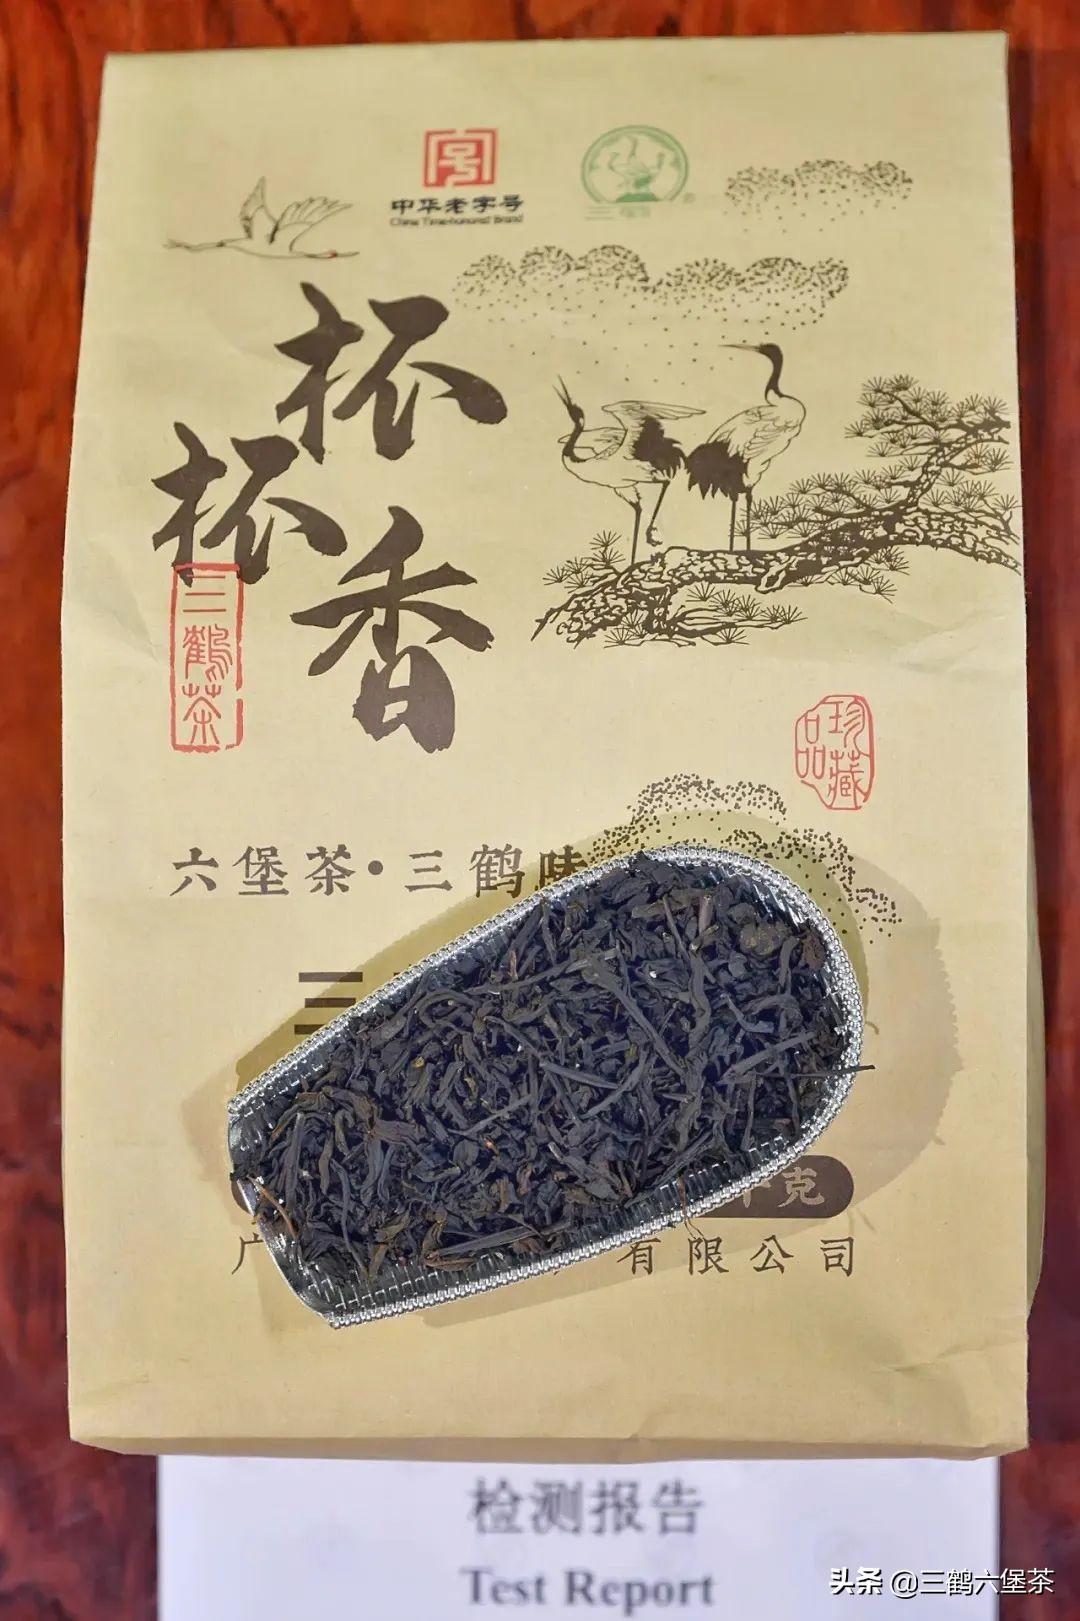 中华老字号
China Time-honored Brand
三鹤
杯杯香
三鶴茶
珍藏品
六堡茶·三鹤味
三
克
广
有限公司
检测报告
Test Report
头条 @三鹤六堡茶